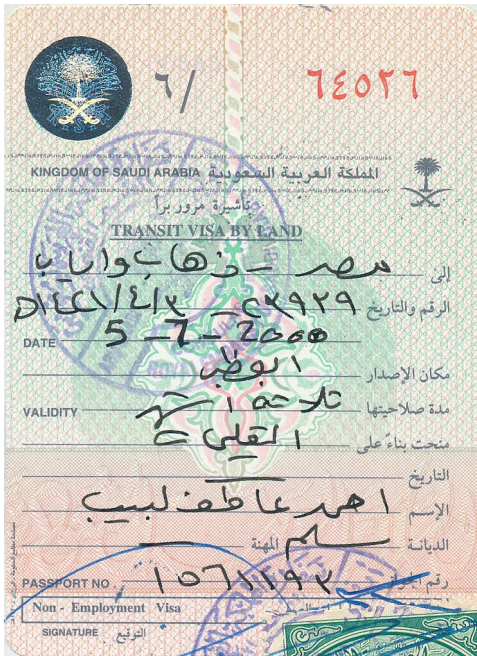 ٦/ ٦٤٥٢٦
KINGDOM OF SAUDI ARABIA المملكة العربية السعودية
تأشيرة مرور براً
TRANSIT VISA BY LAND
إلى مصر - ذهاب واياب
الرقم والتاريخ ٢٣٩٢٩ - ١٤٢١/٤/٣هـ
DATE 5-7-2000
مكان الإصدار ابوظبي
VALIDITY ثلاثة اشهر مدة صلاحيتها
منحت بناءً على
التاريخ
الإسم احمد عاطف لبيب
الديانة مسلم المهنة
PASSPORT NO. ١٥٦١١٩٣ رقم الجواز
Non - Employment Visa
SIGNATURE التوقيع